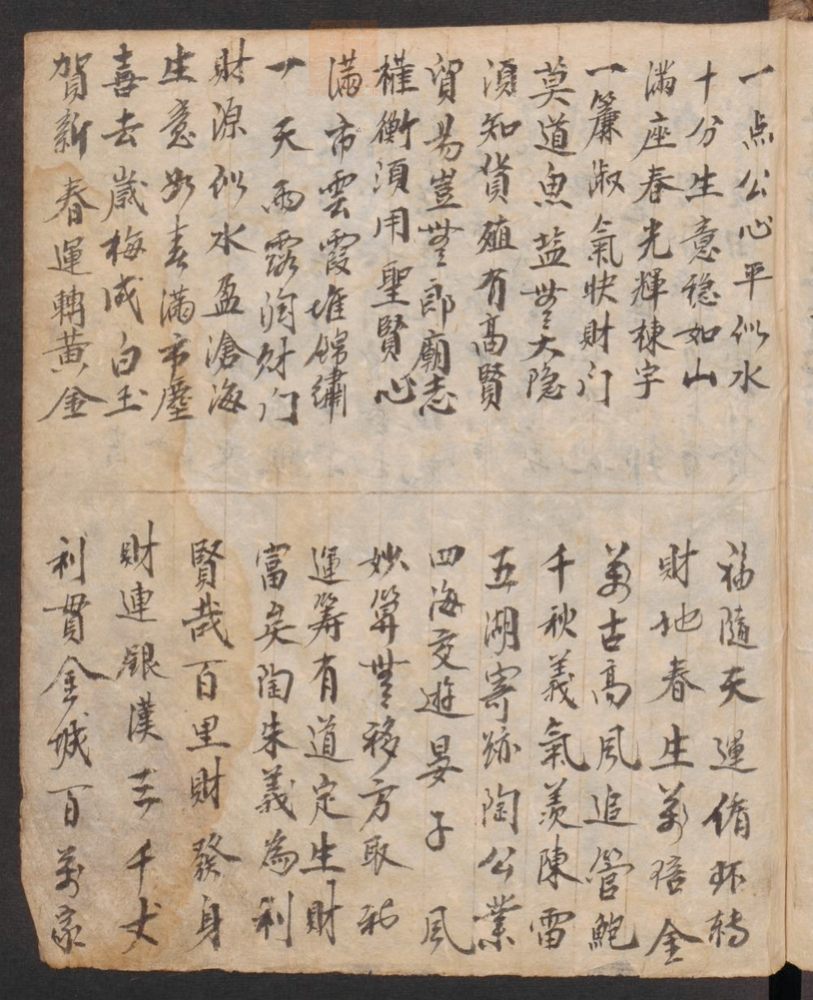 一点公心平似水
十分生意稳如山
滿座春光輝棟宇
一簾淑氣映財门
莫道魚盐無大隐
須知貨殖有高賢
貿易豈無郎廟志
權衡須用聖賢心
滿市雲霞堆錦繡
一天雨露润财门
財源似水盈滄海
生意如春滿市廛
喜去歲梅成白玉
賀新春運轉黃金
福隨天運循环轉
財地春生萬倍金
萬古高風追管鮑
千秋義氣羨陳雷
五湖寄跡陶公業
四海交遊晏子風
妙算無移方取利
運筹有道定生財
富矣陶朱義為利
賢哉百里財發身
財連銀漢三千丈
利貫金城百萬家